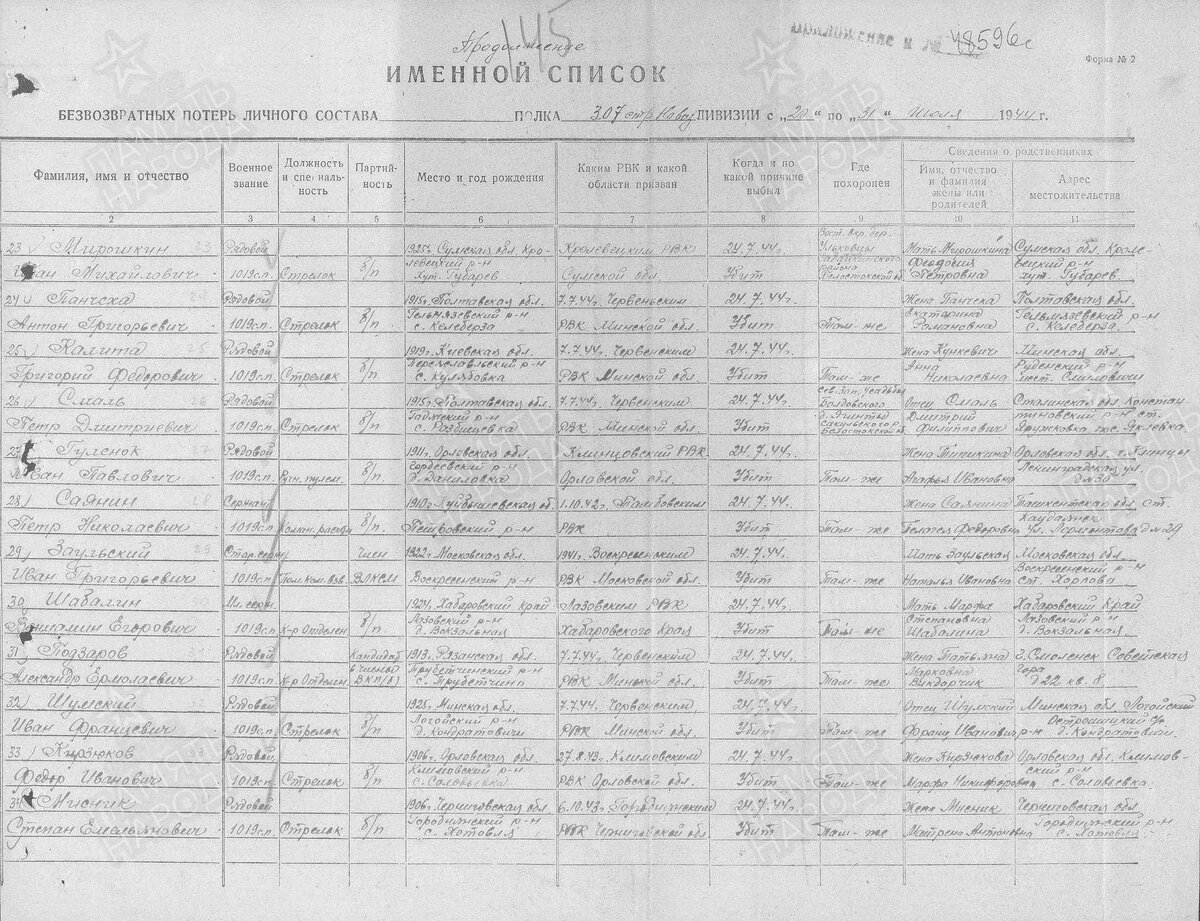 145
Приложение к № 48596с
Продолжение
Форма № 2
ИМЕННОЙ СПИСОК
БЕЗВОЗВРАТНЫХ ПОТЕРЬ ЛИЧНОГО СОСТАВА ПОЛКА 307 ДИВИЗИИ с „20“ по „31“ Июля 1944 г.
Фамилия, имя и отчество Военное звание Должность и специальность Партийность Место и год рождения Каким РВК и какой области призван Когда и по какой причине выбыл Где похоронен Сведения о родственниках
Имя, отчество и фамилия жены или родителей Адрес местожительства
2 3 4 5 6 7 8 9 10 11
23 Мирошкин Рядовой 1925г. Сумская обл. Кролевецкий р-н Кролевецким РВК 24.7.44г. Мать Мирошкина Сумская обл. Кролевецкий р-н
Иван Михайлович 1019 с.п. Стрелок б/п хут. Губарев Сумской обл. Убит Феодосия Петровна хут. Губарев
24 Панчеха Рядовой 1915г. Полтавская обл. 7.7.44г. Червеньским 24.7.44г. Жена Панчеха Полтавская обл.
Антон Григорьевич 1019 с.п. Стрелок б/п Гельмязевский р-н с. Келеберза РВК Минской обл. Убит Там-же Екатерина Романовна Гельмязевский р-н с. Келеберза
25 Калита Рядовой 1919г. Киевская обл. 7.7.44г. Червенским 24.7.44г. Жена Кункевич Минская обл.
Григорий Федорович 1019 с.п. Стрелок б/п Переяславльский р-н с. Кулябовка РВК Минской обл. Убит Там-же Анна Николаевна Руденский р-н мест. Смиловичи
26 Смаль Рядовой 1915г. Полтавская обл. 7.7.44г. Червенским 24.7.44г. Сев. Зап. Усадьбы Отец Смаль Сталинская обл. Константиновский р-н ст.
Петр Дмитриевич 1019 с.п. Стрелок б/п Гадячский р-н с. Разбишевка РВК Минской обл. Убит Дмитрий Филиппович Дружковка
27 Гуленок Рядовой 1911г. Орловская обл. Клинцовский РВК 24.7.44г. Жена Орловская обл. г. Клинцы
Иван Павлович 1019 с.п. Ручн. пулем. б/п Гордеевский р-н д. Даниловка Орловской обл. Убит Там-же Агафья Ивановна Ленинградская ул. д № 30
28 Саянин Сержан. 1910г. Куйбышевская об. 1.10.42г. Тамбовским 24.7.44г. Жена Саянина Ташкентская обл. ст.
Петр Николаевич 1019 с.п. Коман. расчет б/п Петровский р-н РВК Убит Там-же ул. Лермонтова д № 29
29 Заульский Стар. серж. Член 1922г. Московская обл. 1941г. Воскресенским 24.7.44г. Мать Заульская Московская обл.
Иван Григорьевич 1019 с.п. Пом. Ком. взв. ВЛКСМ Воскресенский р-н РВК Московской обл. Убит Там-же Наталья Ивановна Воскресенский р-н ст. Хорлова
30 Шабалин Мл. серж. 1924г. Хабаровский Край Лазовским РВК 24.7.44г. Мать Марфа Хабаровский Край
Вениамин Егорович 1019 с.п. К-р Отделен. б/п Лазовский р-н д. Вокзальная Хабаровского Края Убит Там-же Степановна Шабалина Лазовский р-н д. Вокзальная
31 Подзаров Рядовой Кандидат 1913г. Рязанская обл. 7.7.44г. Червенским 24.7.44г. Жена Татьяна г. Смоленск Советская
Александр Ермолаевич 1019 с.п. К-р Отделен. в члены ВКП/б/ Трубетчинский р-н с. Трубетчино РВК Минской обл. Убит Там-же Марковна Викдорчик гора д 22 кв. 8
32 Шумский Рядовой 1925г. Минская обл. 7.7.44г. Червенским 24.7.44г. Отец Шумский Минская обл. Логойский
Иван Францевич 1019 с.п. Стрелок б/п Логойский р-н д. Кондратовичи РВК Минской обл. Убит Там-же Франц Иванович р-н д. Кондратовичи
33 Кирзюков Рядовой 1906г. Орловская обл. 27.8.43г. Климовским 24.7.44г. Жена Кирзюкова Орловская обл. Климовский р-н
Федор Иванович 1019 с.п. Стрелок б/п Климовский р-н с. Соловьевка РВК Орловской обл. Убит Там-же Марфа Никифоровна с. Солавьевка
34 Мисник Рядовой 1906г. Черниговская обл. 6.10.43г. Городнянским 24.7.44г. Жена Мисник Черниговская обл.
Степан Емельянович 1019 с.п. Стрелок б/п Городнянский р-н с. Хотовля РВК Черниговской обл. Убит Там-же Матрена Антоновна Городнянский р-н с. Хотовля